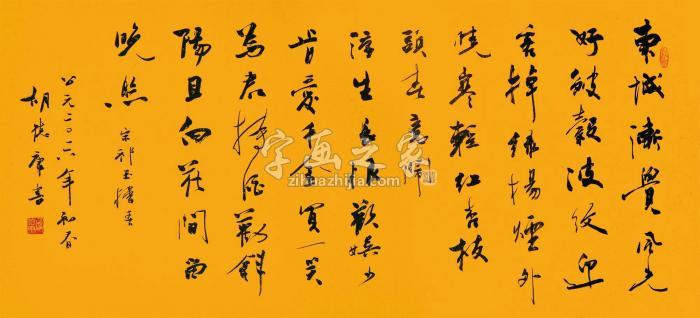 東城漸覺風光
好皺縠波紋迎
客棹綠楊煙外
曉寒輕紅杏枝
頭春意鬧
浮生長恨歡娛少
肯愛千金買一笑
為君持酒勸斜
陽且向花間留
晚照
宋祁玉樓春
公元二〇一六年初春
胡書
字画之家
zihuazhijia.com